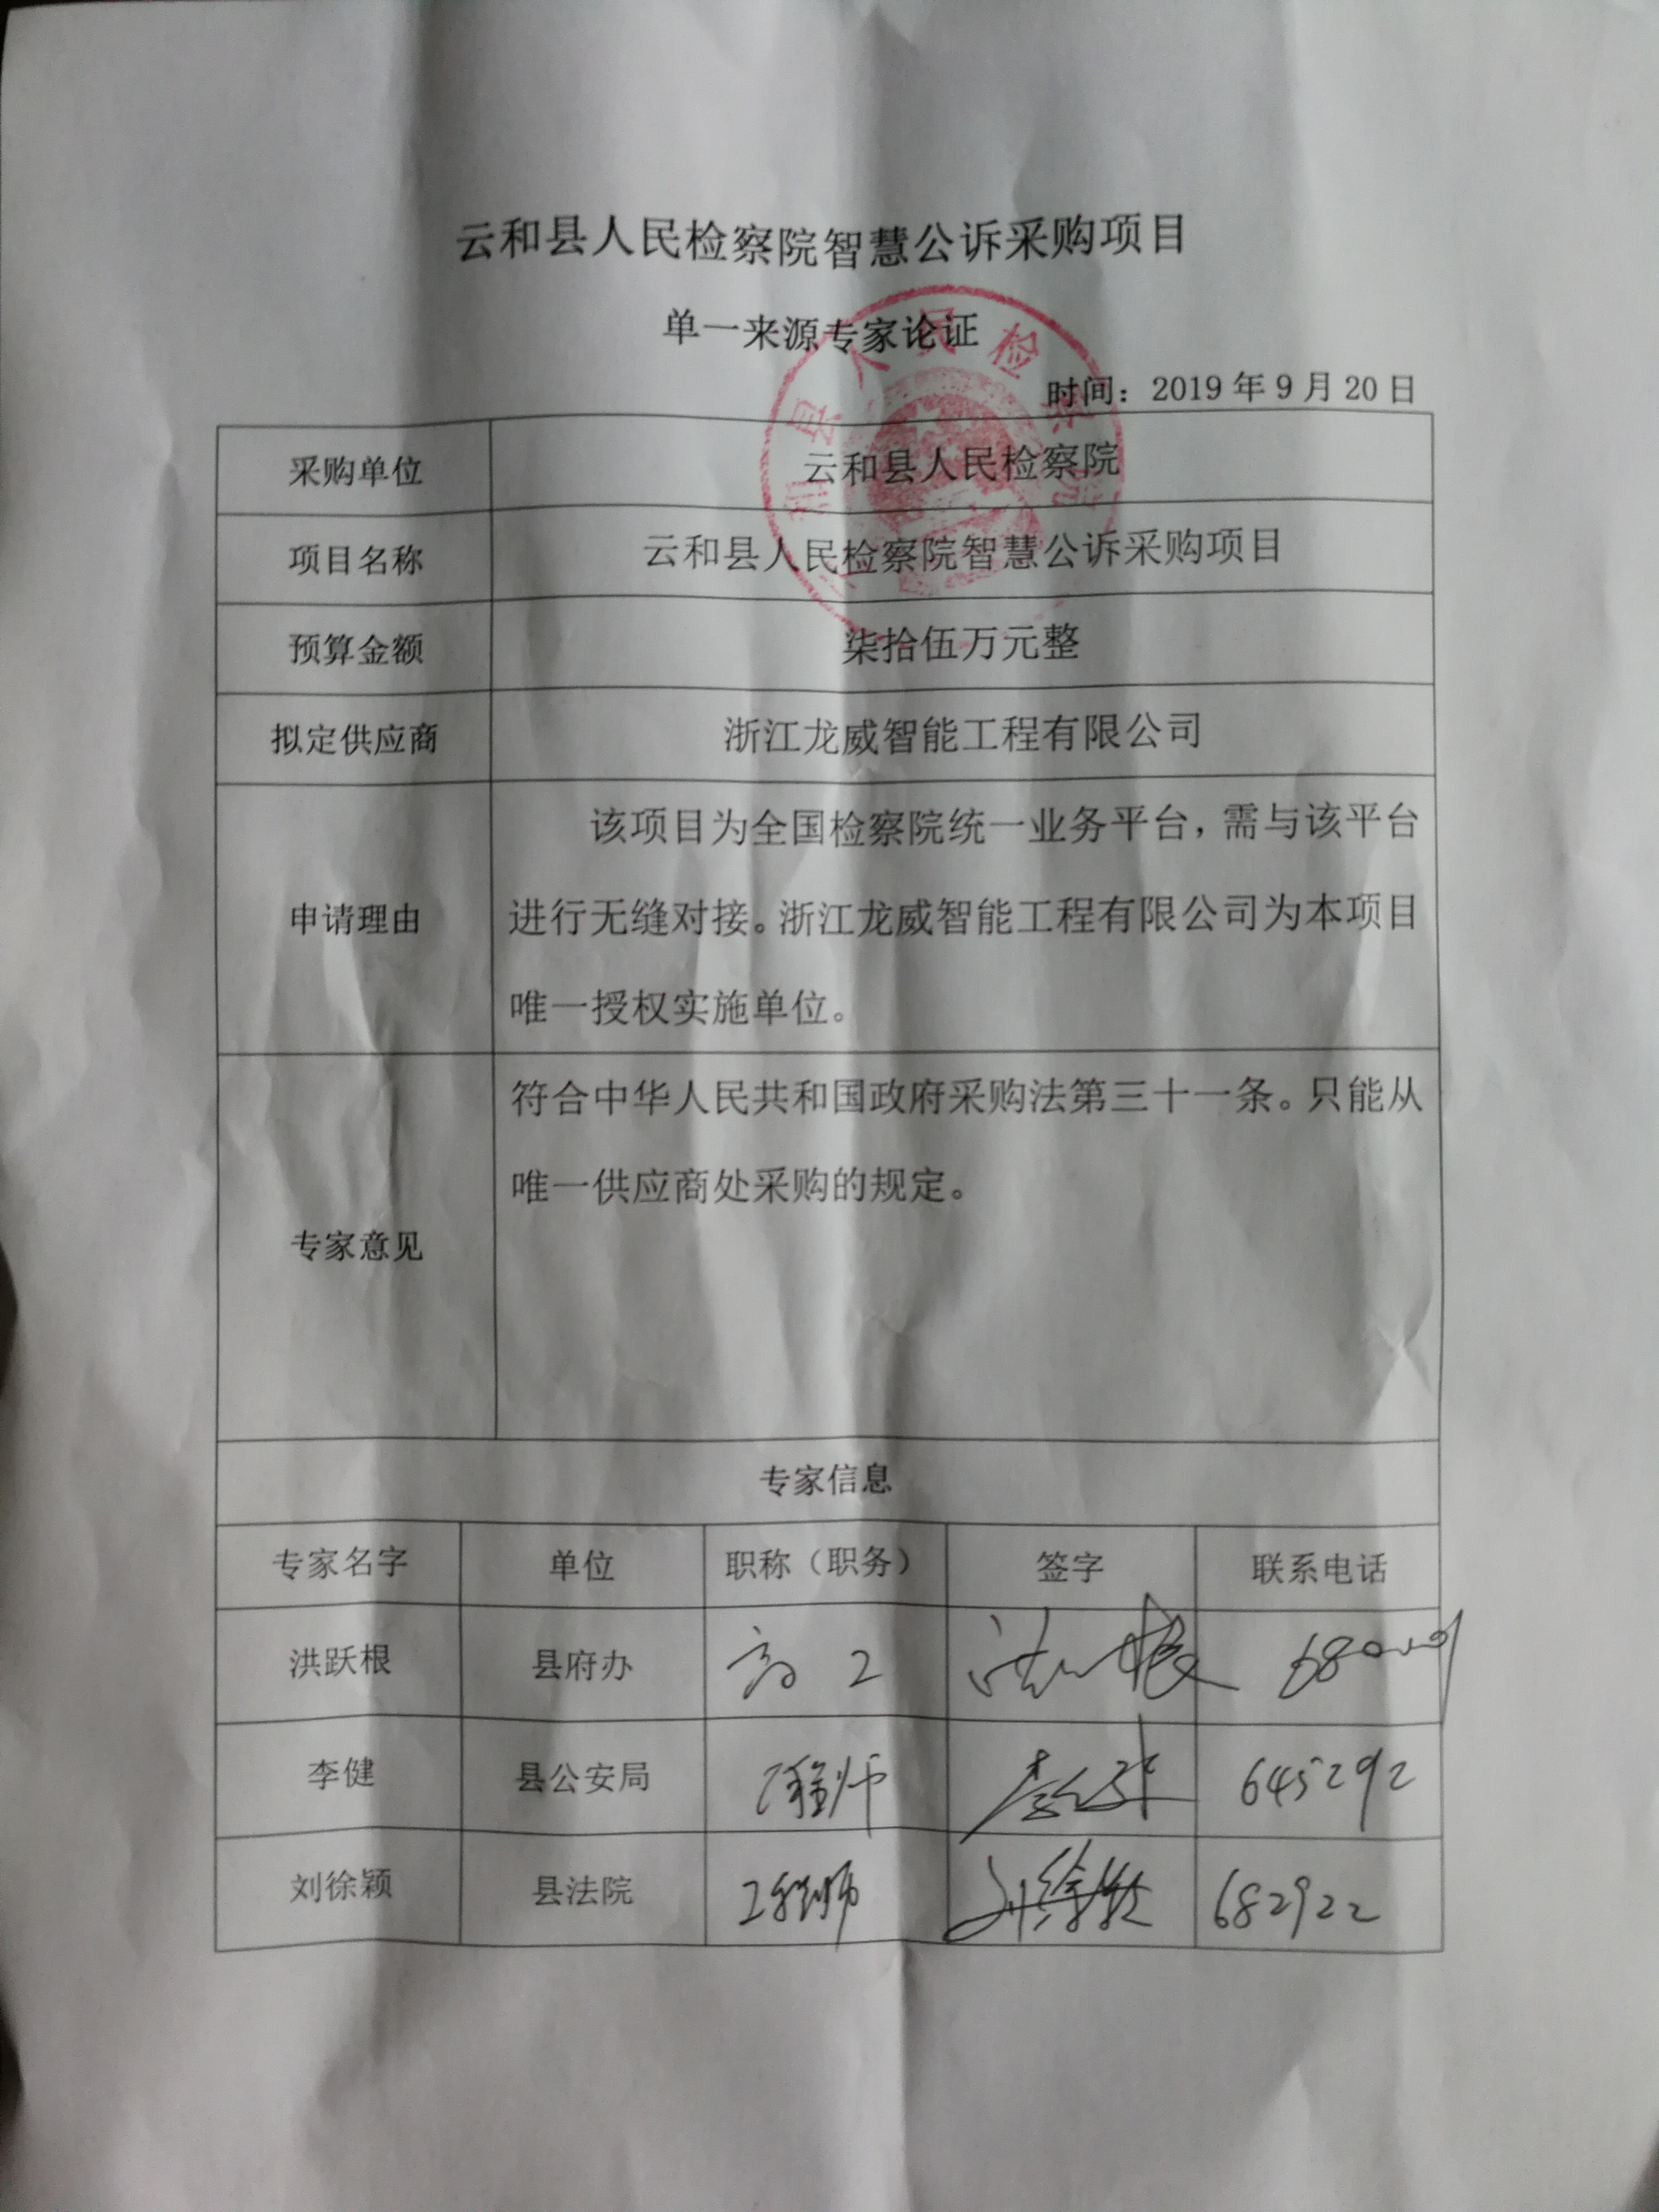 云和县人民检察院智慧公诉采购项目
单一来源专家论证
时间：2019年9月20日
采购单位 云和县人民检察院
项目名称 云和县人民检察院智慧公诉采购项目
预算金额 柒拾伍万元整
拟定供应商 浙江龙威智能工程有限公司
该项目为全国检察院统一业务平台，需与该平台
申请理由 进行无缝对接。浙江龙威智能工程有限公司为本项目
唯一授权实施单位。
符合中华人民共和国政府采购法第三十一条。只能从
唯一供应商处采购的规定。
专家意见
专家信息
专家名字 单位 职称（职务） 签字 联系电话
洪跃根 县府办 高工
李健 县公安局 工程师 李健 645292
刘徐颖 县法院 工程师 刘徐颖 682922